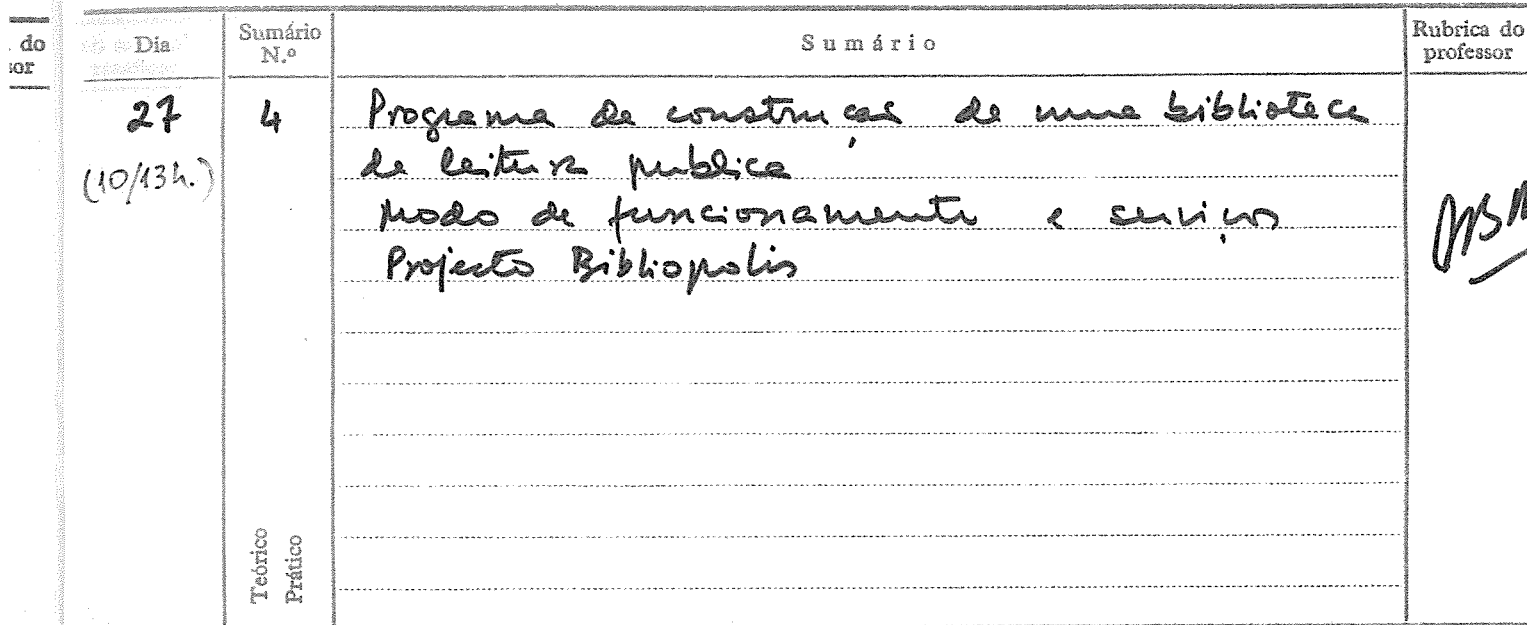 do
sor
Dia
Sumário N.º
Sumário
Rubrica do professor
27
(10/13h.)
4
Programa de construção de uma biblioteca
de leitura publica
Modo de funcionamento e serviços
Projecto Bibliopolis
Teórico
Prático